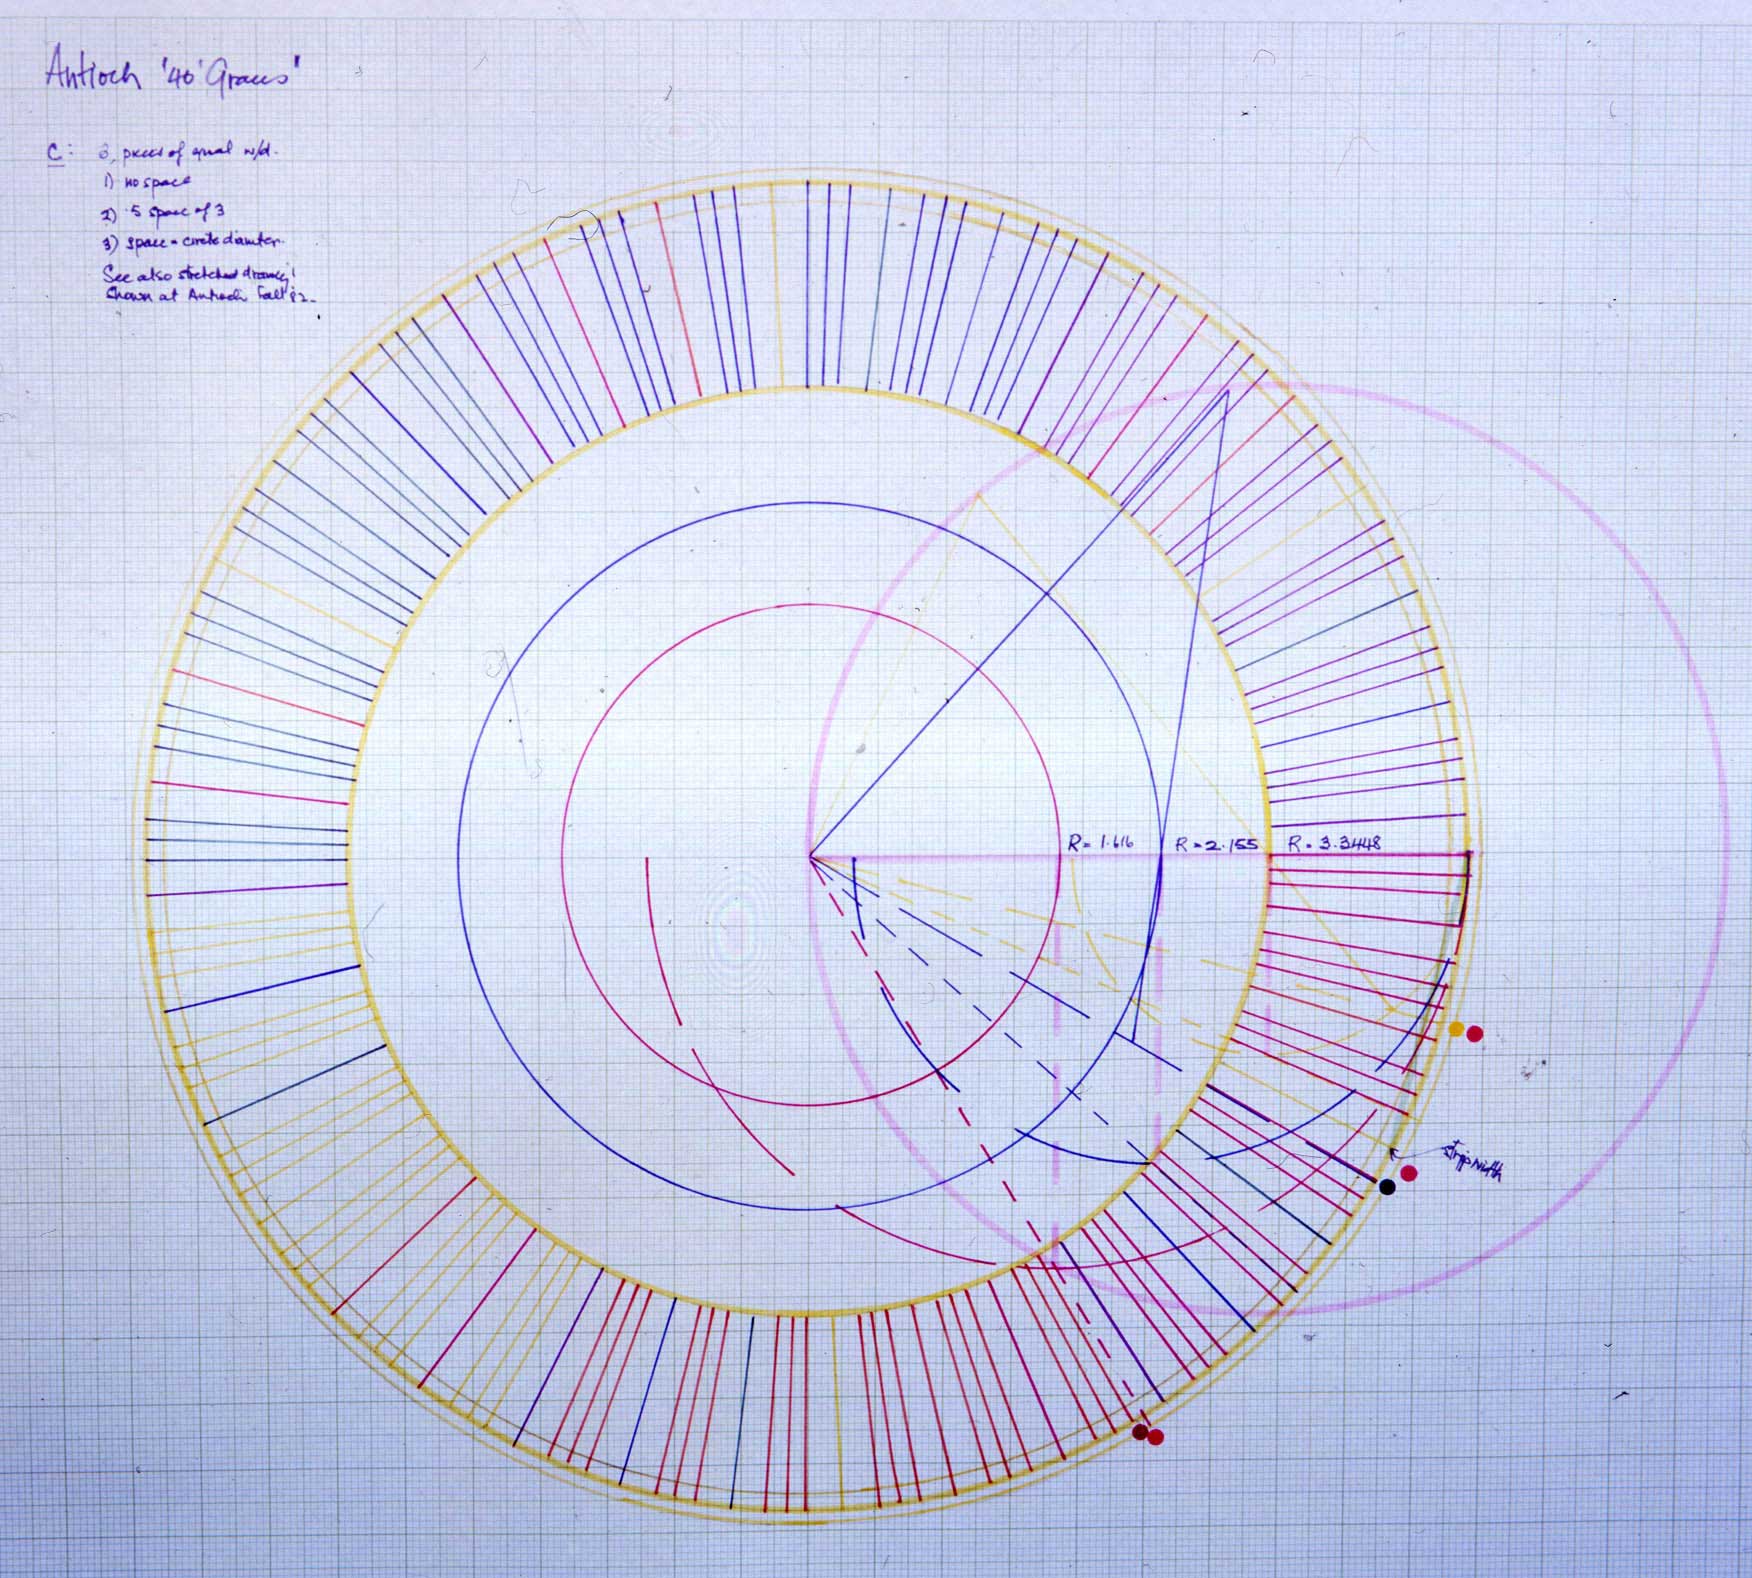 Antioch '40' Graces'
C: 3, pieces of equal w/d.
1) no space
2) .5 space of 3
3) space = circle diameter.
See also stretched drawing
Shown at Antioch Fall 82_
R= 1.616
R=2.155
R=3.3448
strip width